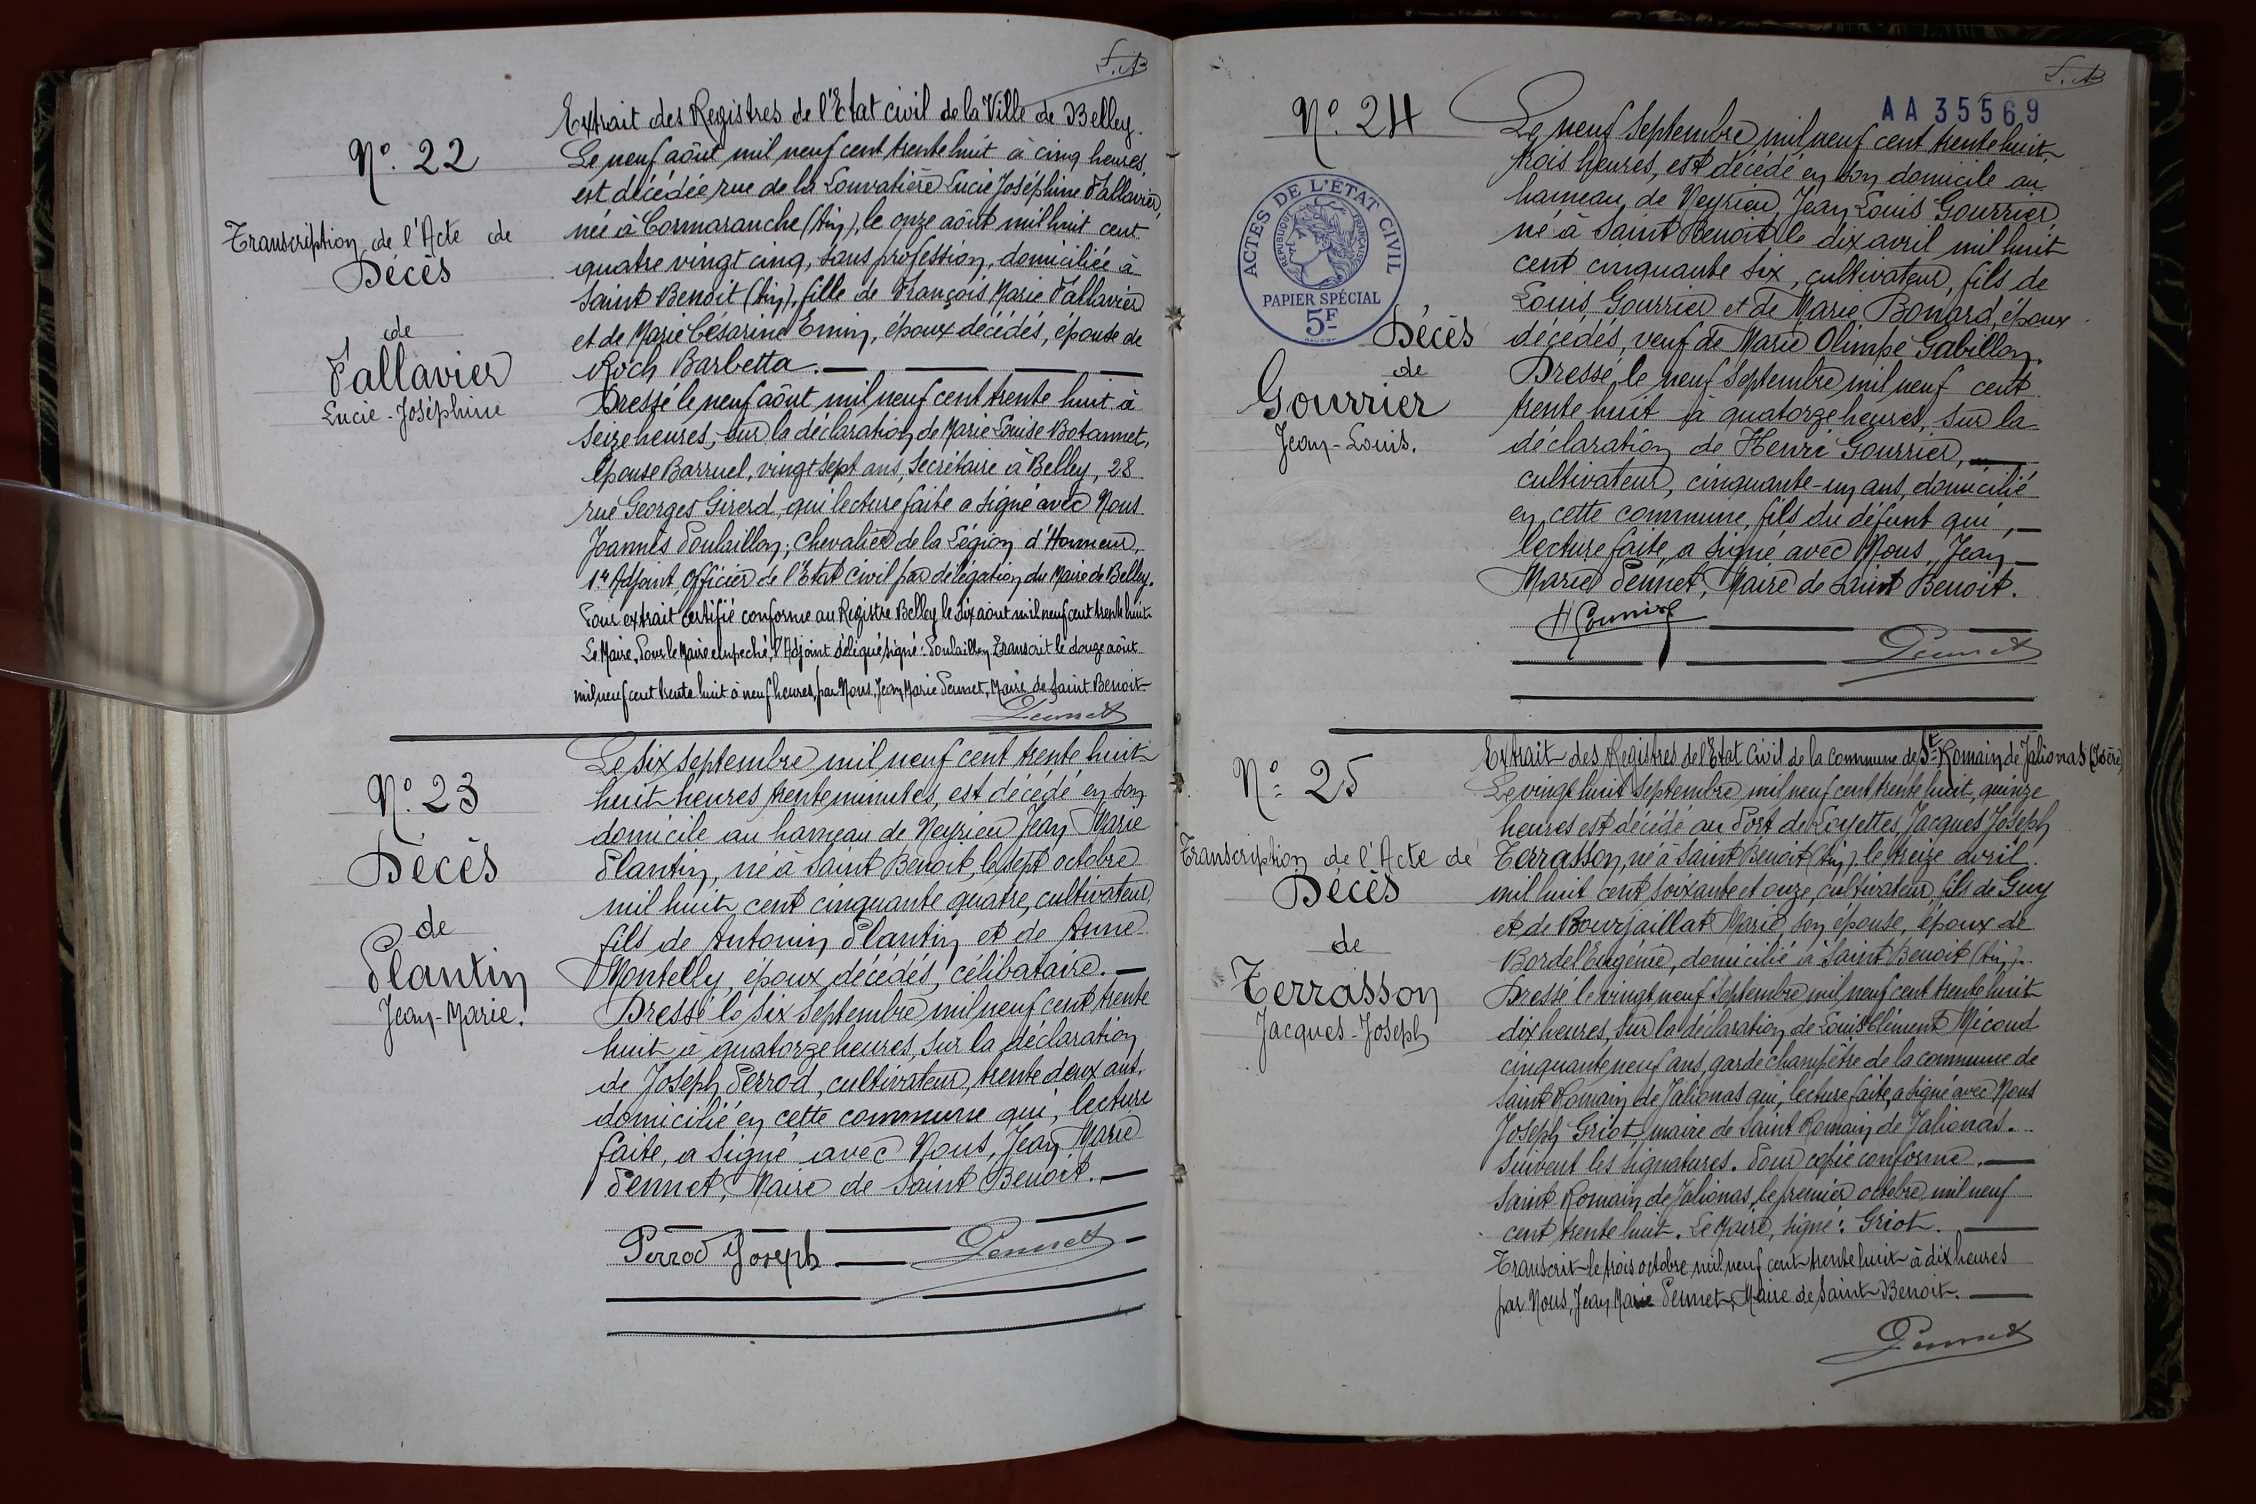 L.B
Nº. 22
Transcription de l'Acte de
Décès
de
Pallavier
Lucie-Joséphine
Extrait des Registres de l'Etat civil de la Ville de Belley.
Le neuf août mil neuf cent trente huit à cinq heures,
est décédée rue de la Louvatière Lucie Joséphine Pallavier,
née à Cormaranche (Ain), le onze août mil huit cent
quatre vingt cinq, sans profession, domiciliée à
Saint Benoit (Ain), fille de François Marie Pallavier
et de Marie Césarine Emin, époux décédés, épouse de
Roch Barbetta.
Dressé le neuf août mil neuf cent trente huit à
seize heures, sur la déclaration de Marie Louise Botannet,
épouse Barruel, vingt sept ans, secrétaire à Belley, 28
rue Georges Girerd, qui lecture faite a signé avec Nous
Joannès Poulaillon, Chevalier de la Légion d'Honneur,
1er Adjoint, Officier de l'Etat Civil par délégation du Maire de Belley.
Pour extrait certifié conforme au Registre Belley le dix août mil neuf cent trente huit
Le Maire, Pour le Maire empeché, l'Adjoint délégué signé: Poulaillon Transcrit le douze août
mil neuf cent trente huit à neuf heures, par Nous, Jean Marie Pennet, Maire de Saint Benoit
Pennet
Nº. 23
Décès
de
Plantin
Jean-Marie.
Le six septembre mil neuf cent trente huit
huit heures trente minutes, est décédé en son
domicile au hameau de Neyrieu Jean Marie
Plantin, né à Saint Benoit, le sept octobre
mil huit cent cinquante quatre, cultivateur,
fils de Antonin Plantin et de Anne
Montelly, époux décédés, célibataire.
Dressé le six septembre mil neuf cent trente
huit à quatorze heures, sur la déclaration
de Joseph Perrod, cultivateur, trente deux ans,
domicilié en cette commune qui, lecture
faite, a signé avec Nous, Jean Marie
Pennet, Maire de Saint Benoit.
Perrod Joseph Pennet
L.B
AA 35569
Nº. 24
ACTES DE L'ÉTAT CIVIL
RÉPUBLIQUE FRANÇAISE
PAPIER SPÉCIAL
5F
Décès
de
Gourrier
Jean-Louis.
Le neuf septembre mil neuf cent trente huit
trois heures, est décédé en son domicile au
hameau de Neyrieu, Jean Louis Gourrier,
né à Saint Benoit le dix avril mil huit
cent cinquante six, cultivateur, fils de
Louis Gourrier et de Marie Bonard, époux
décédés, veuf de Marie Olimpe Gabillon.
Dressé le neuf septembre mil neuf cent
trente huit à quatorze heures, sur la
déclaration de Henri Gourrier,
cultivateur, cinquante-un ans, domicilié
en cette commune, fils du défunt qui,
lecture faite, a signé avec Nous, Jean
Marie Pennet, Maire de Saint Benoit.
H Gourrier
Pennet
Nº: 25
Transcription de l'Acte de
Décès
de
Terrasson
Jacques-Joseph
Extrait des Registres de l'Etat Civil de la commune de St-Romain de Jalionas (Isère)
Le vingt huit septembre mil neuf cent trente huit, quinze
heures est décédé au Port de Loyettes, Jacques Joseph
Terrasson, né à Saint Benoit (Ain), le treize avril
mil huit cent soixante et onze, cultivateur, fils de Guy
et de Bourjaillat Marie, son épouse, époux de
Bordel Eugénie, domicilié à Saint Benoit (Ain).
Dressé le vingt neuf septembre mil neuf cent trente huit
dix heures, sur la déclaration de Louis Clément Micoud
cinquante neuf ans, garde champêtre de la commune de
Saint Romain de Jalionas qui, lecture faite, a signé avec Nous
Joseph Griot, maire de Saint Romain de Jalionas.
Suivent les signatures. Pour copie conforme.
Saint Romain de Jalionas, le premier octobre mil neuf
cent trente huit. Le Maire, signé: Griot.
Transcrit le trois octobre mil neuf cent trente huit à dix heures
par Nous, Jean Marie Pennet, Maire de Saint Benoit.
Pennet